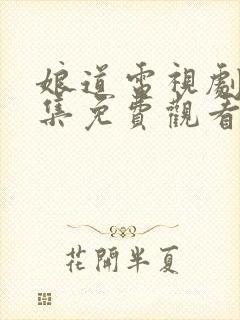 娘道電視劇
集免費觀看
花開半夏